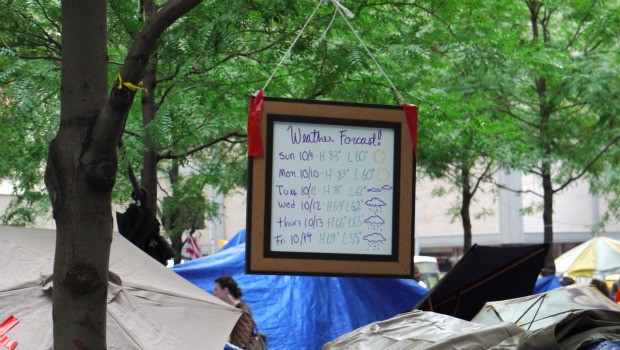 Weather Forcast!
Sun 10/9 - H 83° L 60°
Mon 10/10 - H 83° L 60°
Tues 10/11 - H 76° L 61°
Wed 10/12 - H 69° L 62°
Thurs 10/13 H 66° L 65°
Fri 10/14 H 69° L 55°